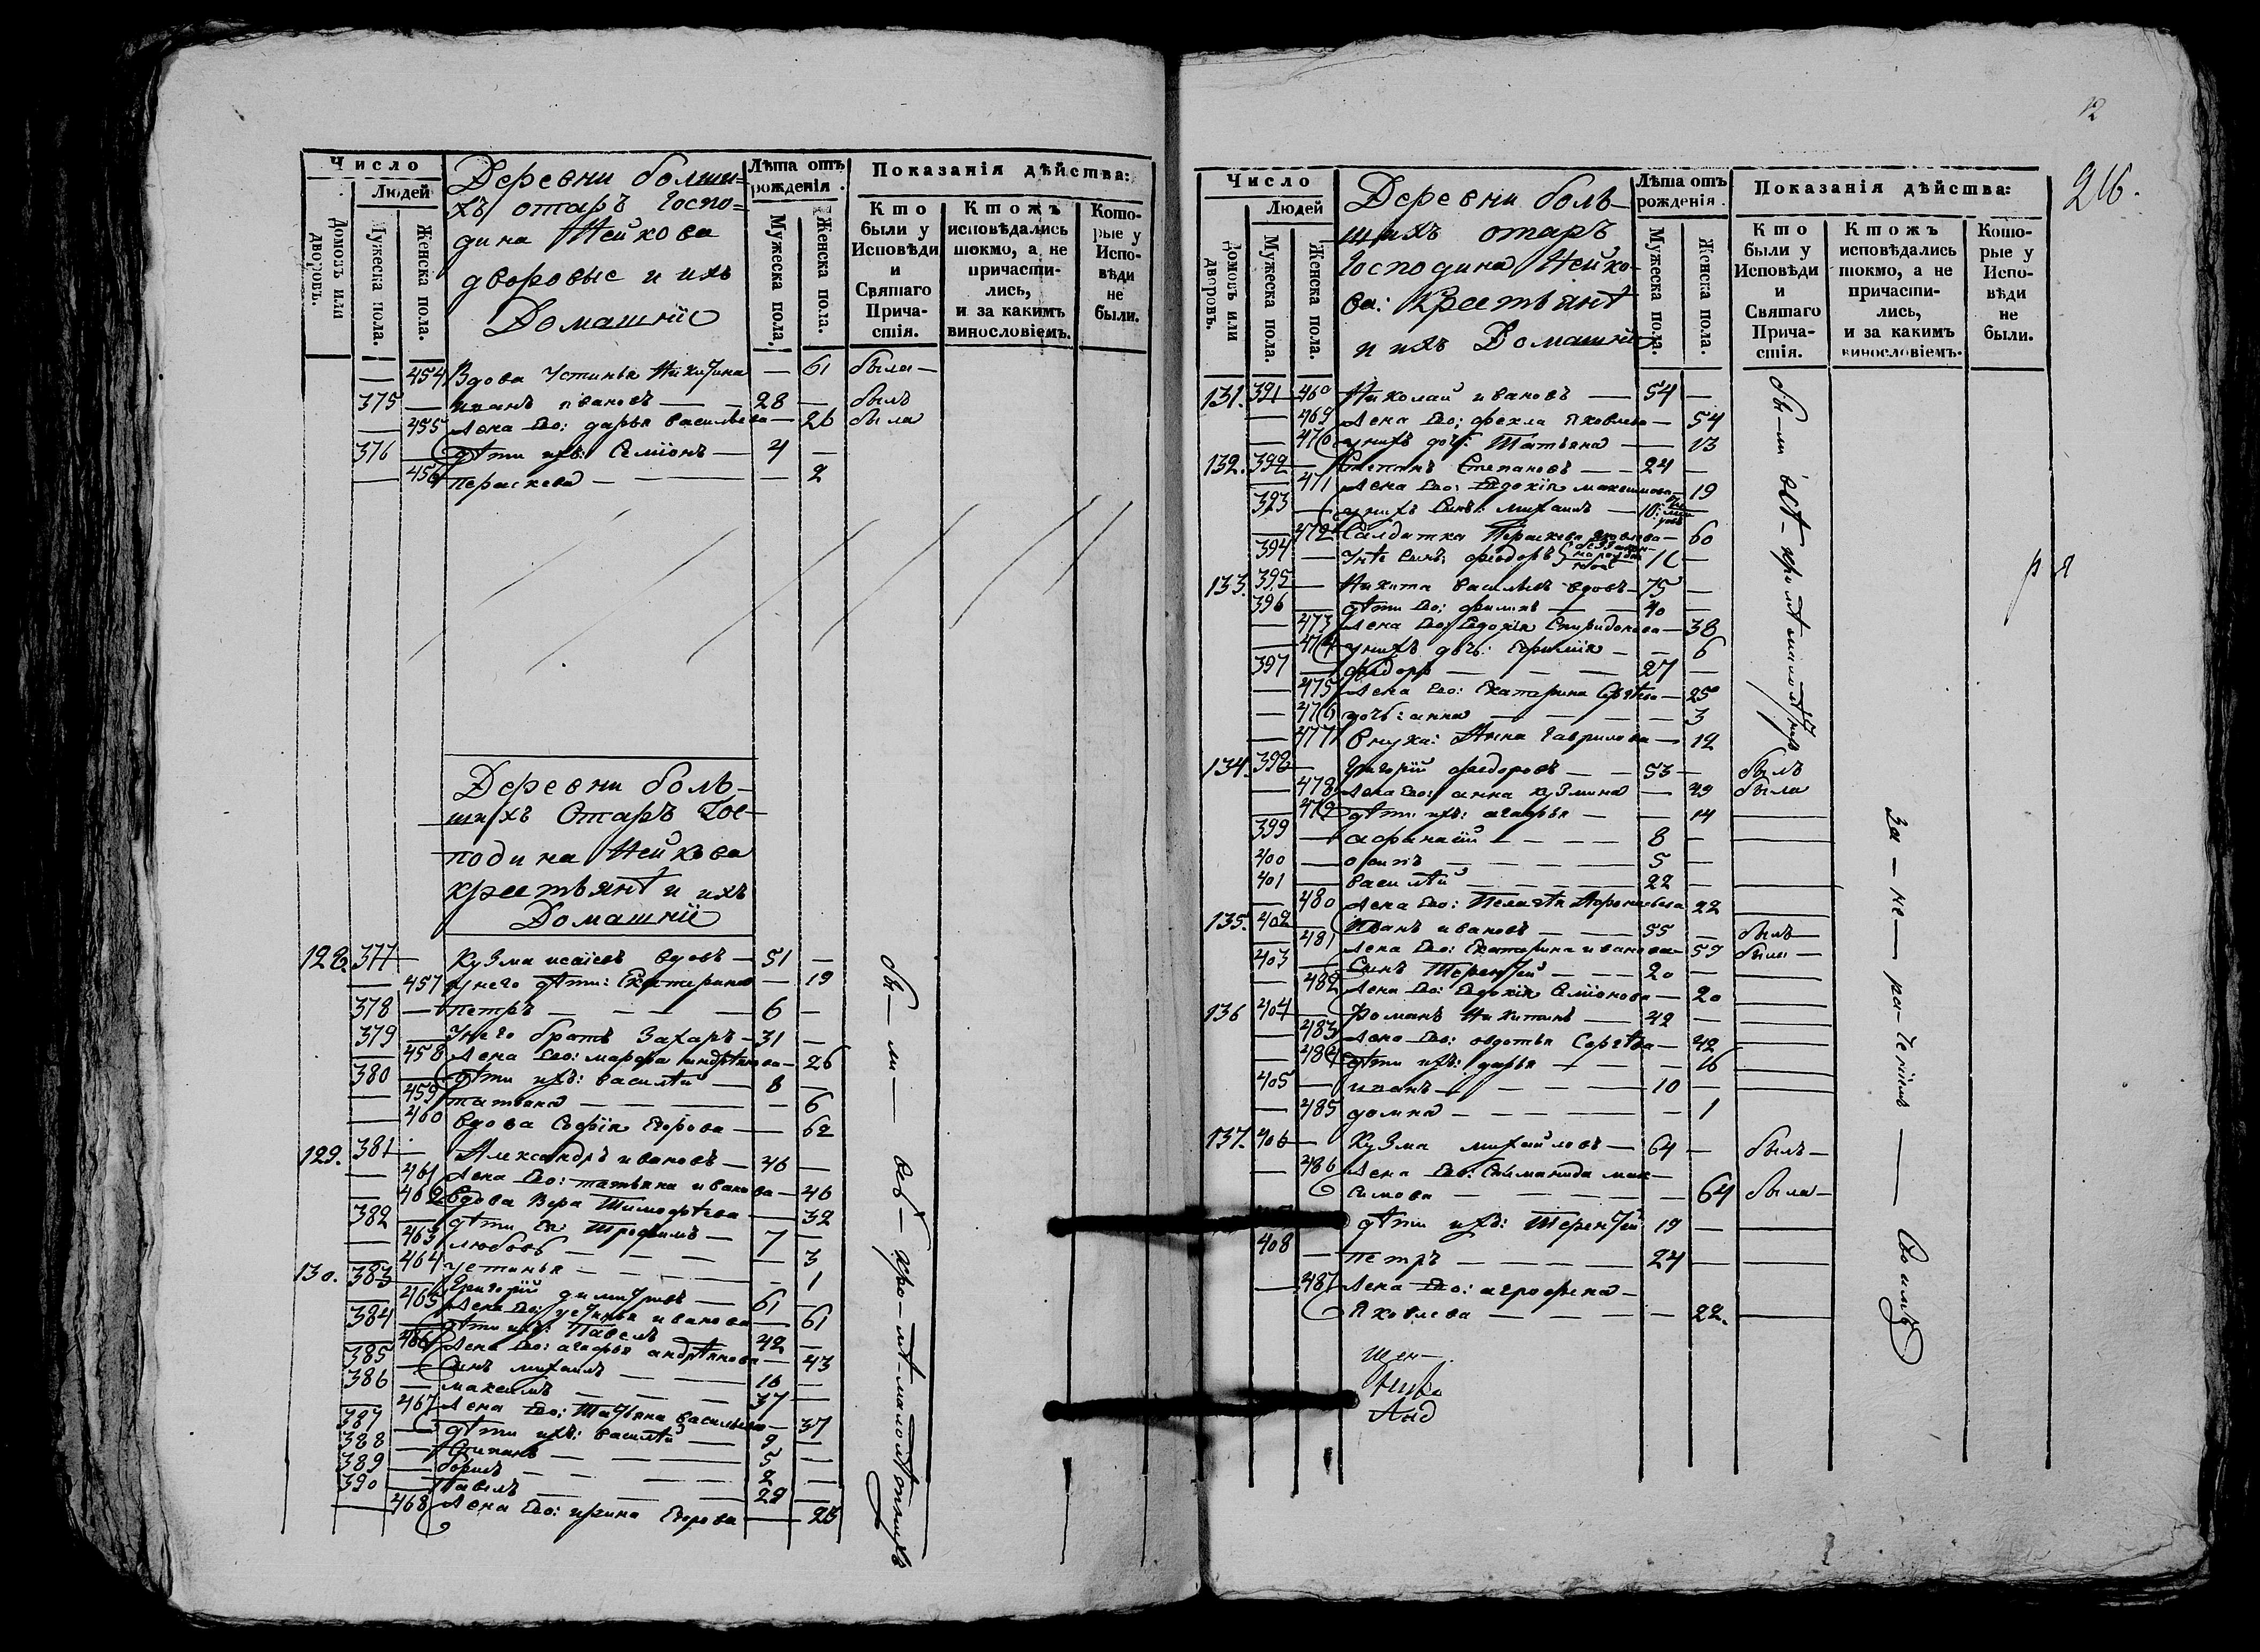 Число
Людей
домовъ или дворовъ.
Мужеска пола.
Женска пола.
Деревни болши=
хъ отаръ Госпо=
дина Нейкова
дворовые и ихъ
Домашнiе
Лѣта отъ рожденiя.
Мужеска пола.
Женска пола.
Показанiя дѣйства:
Кто были у Исповѣди и Святаго Прича-стiя.
Ктожъ исповѣдались токмо, а не причасти-лись, и за какимъ винословiемъ.
Кото-рые у Испо-вѣди не были.
— 454 Вдова Устинья Никитина — 61 была —
375 — Иванъ ивановъ — 28 — былъ
— 455 Жена Его: дарья васильева — 26 была
376 — дѣти ихъ: Семiонъ — 4 —
— 456 Параскева — — 2
Деревни боль-
шихъ Отаръ Гос-
подина Нейкова
крестьянѣ и ихъ
Домашнiе
128. 377 — Кузма исаiевъ вдовъ — 51 —
— 457 у него дѣти: Екатерина — 19
378 — петръ — 6 —
379 — У него братъ Захаръ — 31 —
— 458 Жена Его: марфа андрѣянова — 26
380 — дѣти ихъ: василѣй — 8 —
— 459 татьяна — — 6
— 460 вдова Софiя Егорова — 62
129. 381 — Александръ ивановъ — 46 —
— 461 Жена Его: татьяна иванова — 46
— 462 Вдова Вера Тимофѣева — 32
382 — дѣти Ея: Трофимъ — 7 —
— 463 любовь — — 3
— 464 устинья — — 1
130. 383 — Григорiй димитрiевъ — 61 —
— 465 Жена Его: устинья иванова — 61
384 — дѣти ихъ: Павелъ — 42 —
— 466 Жена Его: агафья андрѣянова — 43
385 — Сынъ михаилъ — 16 —
386 — максимъ — 37 —
— 467 Жена Его: Татьяна васильева — 37
387 — дѣти ихъ: василѣй — 9 —
388 — — 5 —
389 — борисъ — 2 —
390 — Павелъ — 29 —
— 468 Жена Его: ирина Егорова — 28
бы — ли — всѣ — кро — мѣ — малолѣтнихъ
12
216.
Число
Людей
домовъ или дворовъ.
Мужеска пола.
Женска пола.
Деревни боль-
шихъ отаръ
Господина Нейко-
ва: Крестьянѣ
и ихъ Домашнiе
Лѣта отъ рожденiя.
Мужеска пола.
Женска пола.
Показанiя дѣйства:
Кто были у Исповѣди и Святаго Прича-стiя.
Ктожъ исповѣдались токмо, а не причасти-лись, и за какимъ винословiемъ.
Кото-рые у Испо-вѣди не были.
131. 391 460 Николай ивановъ — 54 —
— 469 Жена Его: фекла Яковлева — 54
— 470 у нихъ дочь: Татьяна — 13
132. 392 — Степанъ Степановъ — 24 —
— 471 Жена Его: Евдокiя максимова — 19
393 — у нихъ Сынъ: михаилъ — 10:
— 472 Салдатка Параскева Яковлева — 60
394 — У нее Сынъ феодоръ
133. 395 — Никита васильевъ вдовъ — 75 —
396 — дѣти Его: филипъ — 40 —
— 473 Жена Его: Евдокiя Спиридонова — 38
— 474 у нихъ дочь: Ефимiя — 6
397 — федоръ — 27 —
— 475 Жена Его: Екатерина Сергѣева — 25
— 476 дочь: анна — 3
— 477 Внука: Анна Гаврилова — 12
134. 398 — Григорiй федоровъ — 53 — былъ
— 478 Жена Его: анна кузмина — 49 была
— 479 дѣти ихъ: агафья — 14
399 — афанасiй — 8 —
400 — осипъ — 5 —
401 — василѣй — 22 —
— 480 Жена Его: Пелагѣя Афонасьева 22
135. 402 — Иванъ ивановъ — 55 — былъ —
— 481 Жена Его: Екатерина иванова — 59 была —
403 — Сынъ Терентей — 20 —
— 482 Жена Его: Евдокiя Семiонова — 20
136 404 — Романъ Никитинъ — 42 —
— 483 Жена Его: овдотья Сергѣева — 42
— 484 дѣти ихъ: дарья — 16
405 — иванъ — 10 —
— 485 домна — — 1
137. 406 — Кузма михайловъ — 64 — былъ —
— 486 Жена Его: Соломанида мак-
симова — — 64 была —
дѣти ихъ: Терентей 19 —
408 — петръ — 24 —
— 487 Жена Его: агрофена —
Яковлева — — 22.
бы — ли всѣ — кромѣ малолѣтнихъ
за — не — ра — ченiемъ — воимъ